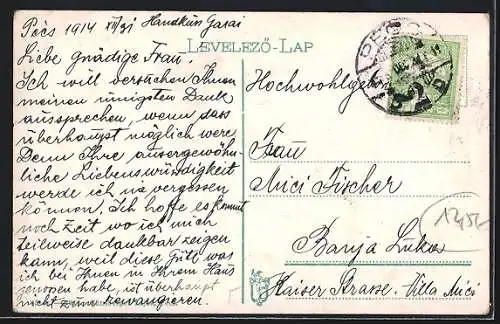 Pécs 1914 XII/31 Handkuss Garai
Liebe gnädige Frau.
Ich will versuchen Ihnen
meinen innigsten Dank
aussprechen, wenn dass
überhaupt möglich were
Denn Ihre ausergewöhn-
liche Liebenswürdigkeit
werde ich nie vergessen
können, Ich hoffe es kommt
noch Zeit wo ich mich
teilweise dankbar zeigen
kann, weil diese Güte was
ich bei Ihnen in Ihrem Haus
genossen habe, ist überhaupt
nicht zum rewangieren.
LEVELEZŐ-LAP
PÉCS
Hochwohlgeb
Frau
Mici Fischer
Banja Luka
Kaiser Strasse. Villa Mici